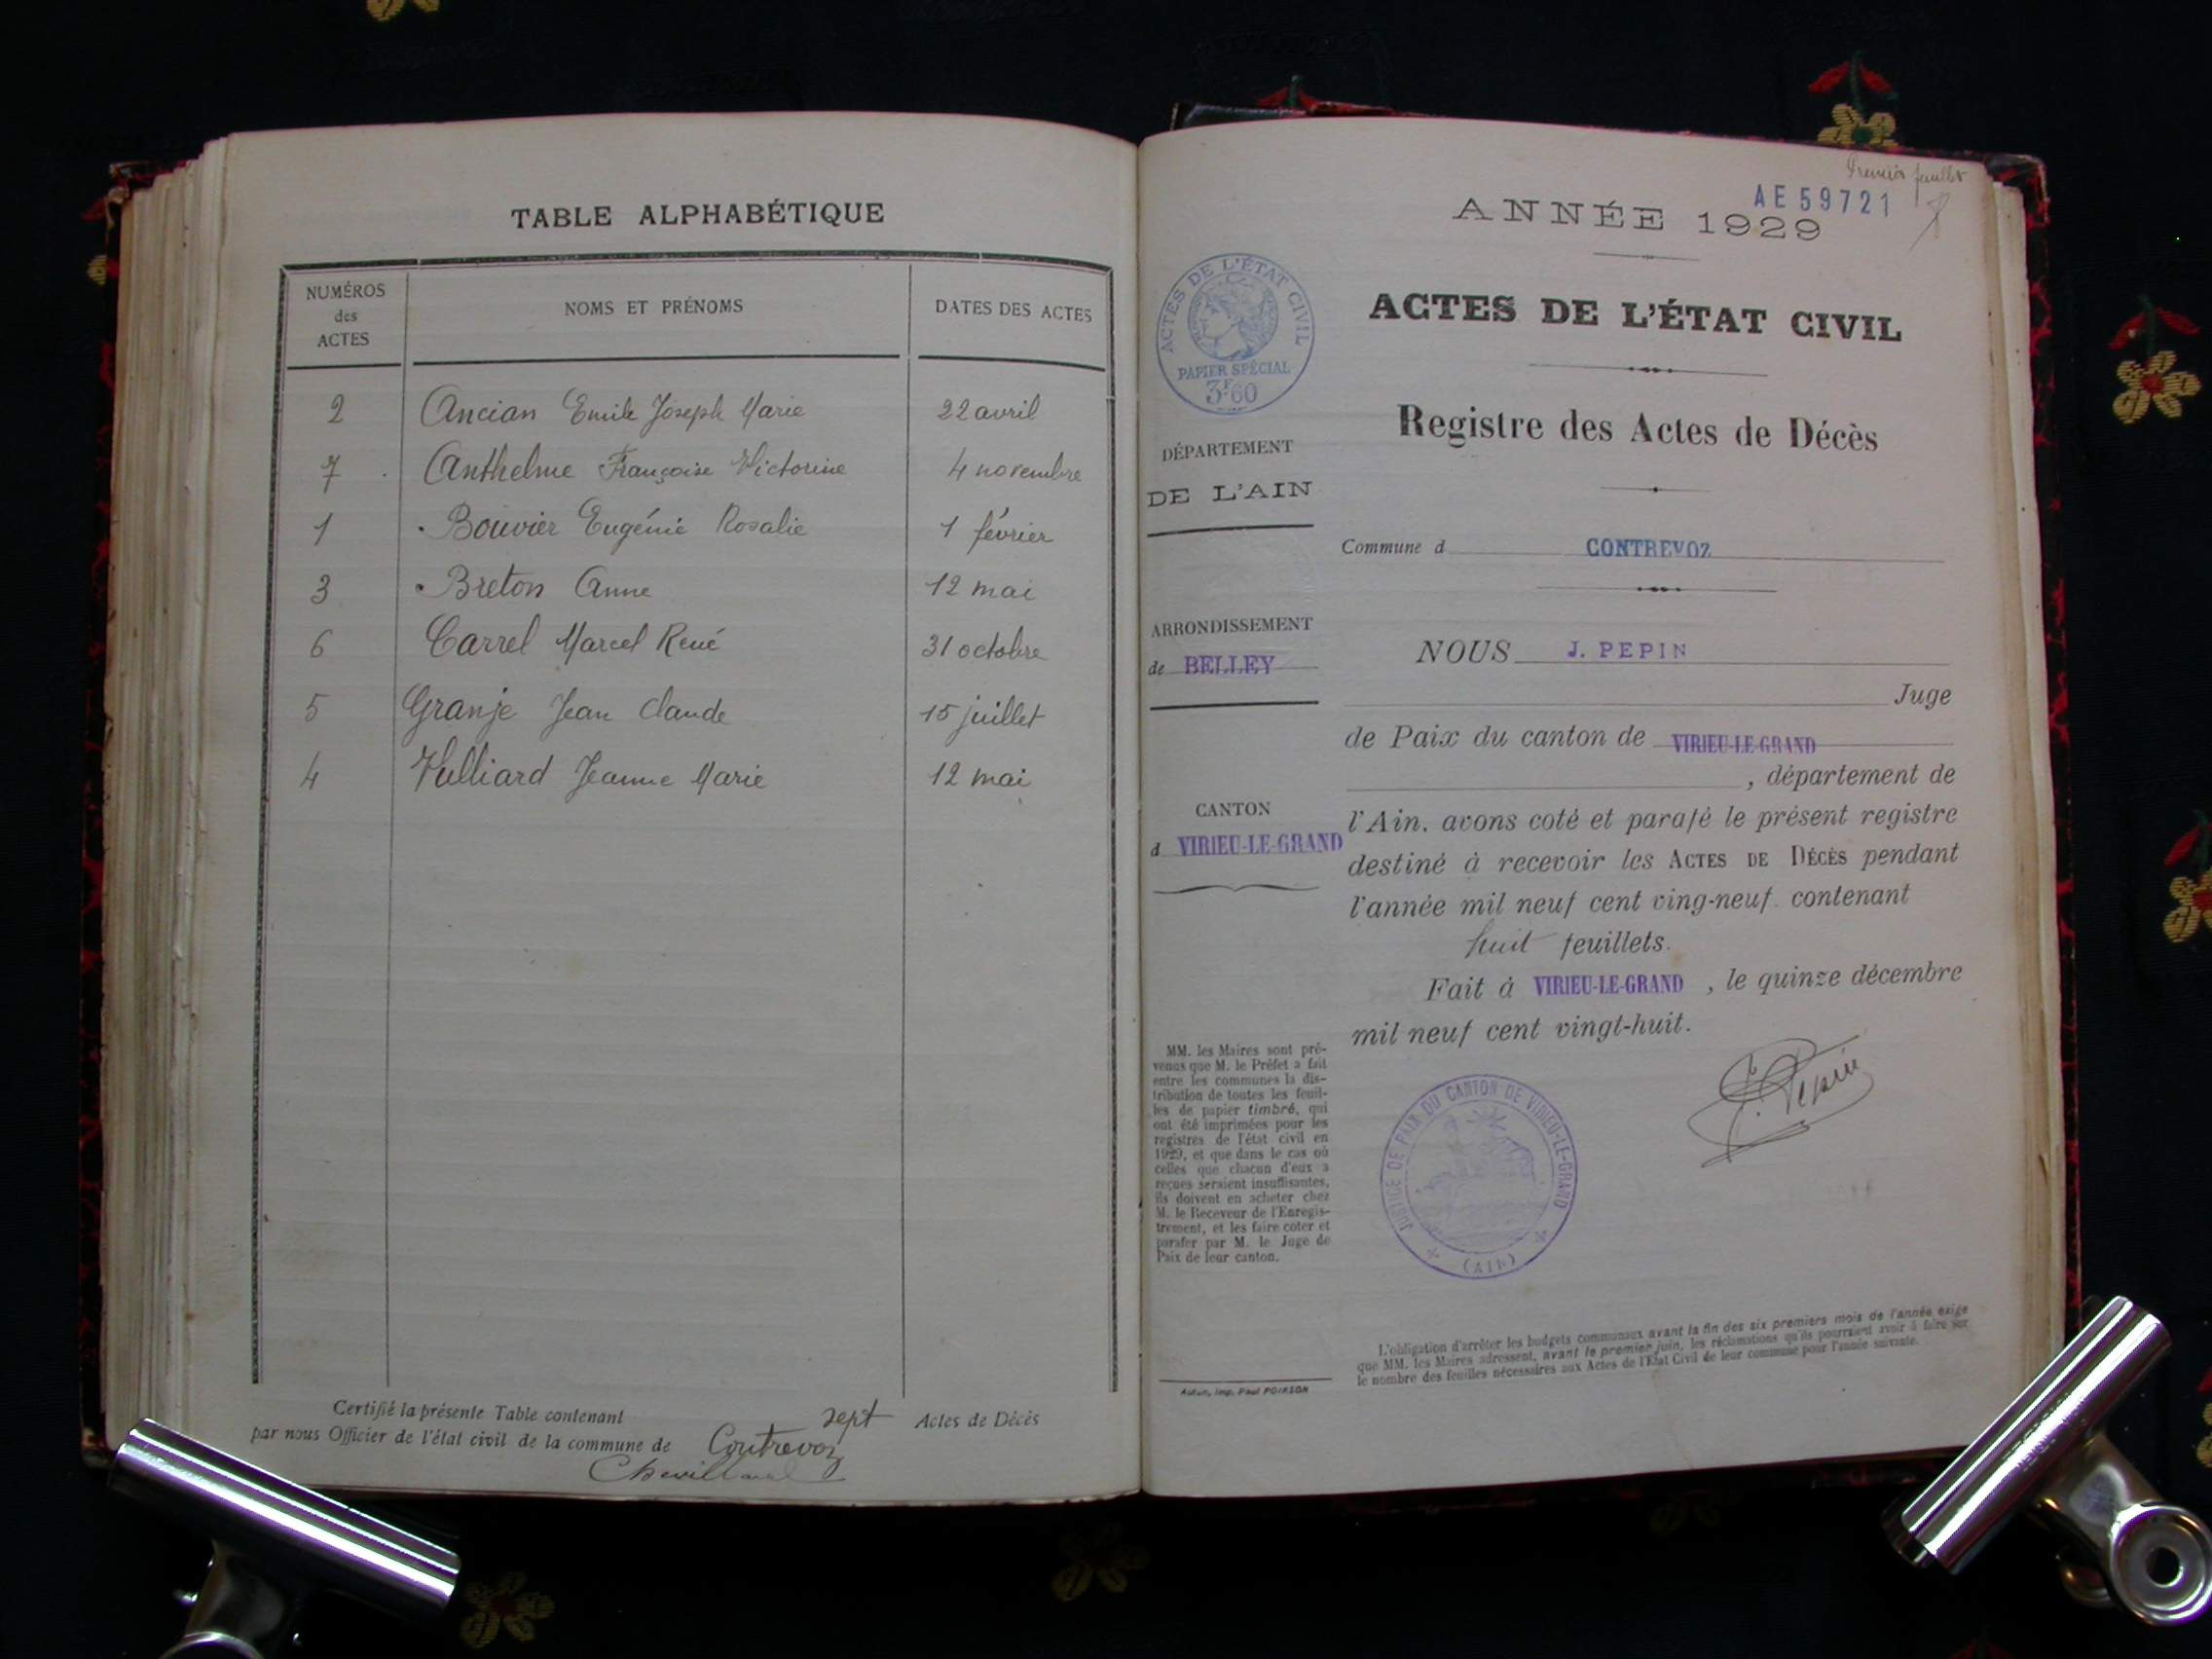 TABLE ALPHABÉTIQUE
NUMÉROS
des
ACTES
NOMS ET PRÉNOMS
DATES DES ACTES
2 Ancian Emile Joseph Marie 22 avril
7 Anthelme Françoise Victorine 4 novembre
1 Bouvier Eugénie Rosalie 1 février
3 Breton Anne 12 mai
6 Carrel Marcel René 31 octobre
5 Granje Jean Claude 15 juillet
4 Vulliard Jeanne Marie 12 mai
Certifié la présente Table contenant sept Actes de Décès
par nous Officier de l'état civil de la commune de Contrevoz
Premier feuillet
AE 59721
ANNÉE 1929
ACTES DE L'ÉTAT CIVIL
PAPIER SPÉCIAL
3F60
ACTES DE L'ÉTAT CIVIL
Registre des Actes de Décès
DÉPARTEMENT
DE L'AIN
Commune d CONTREVOZ
ARRONDISSEMENT
de BELLEY
CANTON
d VIRIEU-LE-GRAND
NOUS J. PEPIN
Juge
de Paix du canton de VIRIEU-LE-GRAND
, département de
l'Ain, avons coté et parafé le présent registre
destiné à recevoir les ACTES DE DÉCÈS pendant
l'année mil neuf cent ving-neuf contenant
huit feuillets.
Fait à VIRIEU-LE-GRAND , le quinze décembre
mil neuf cent vingt-huit.
J. Pepin
JUSTICE DE PAIX DU CANTON DE VIRIEU-LE-GRAND
(AIN)
MM. les Maires sont pré-
venus que M. le Préfet a fait
entre les communes la dis-
tribution de toutes les feuil-
les de papier timbré, qui
ont été imprimées pour les
registres de l'état civil en
1929, et que dans le cas où
celles que chacun d'eux a
reçues seraient insuffisantes,
ils doivent en acheter chez
M. le Receveur de l'Enregis-
trement, et les faire coter et
parafer par M. le Juge de
Paix de leur canton.
Autun, Imp. Paul POIRSON
L'obligation d'arrêter les budgets communaux avant la fin des six premiers mois de l'année exige
que MM. les Maires adressent, avant le premier juin, les réclamations qu'ils pourraient avoir à faire sur
le nombre des feuilles nécessaires aux Actes de l'Etat Civil de leur commune pour l'année suivante.